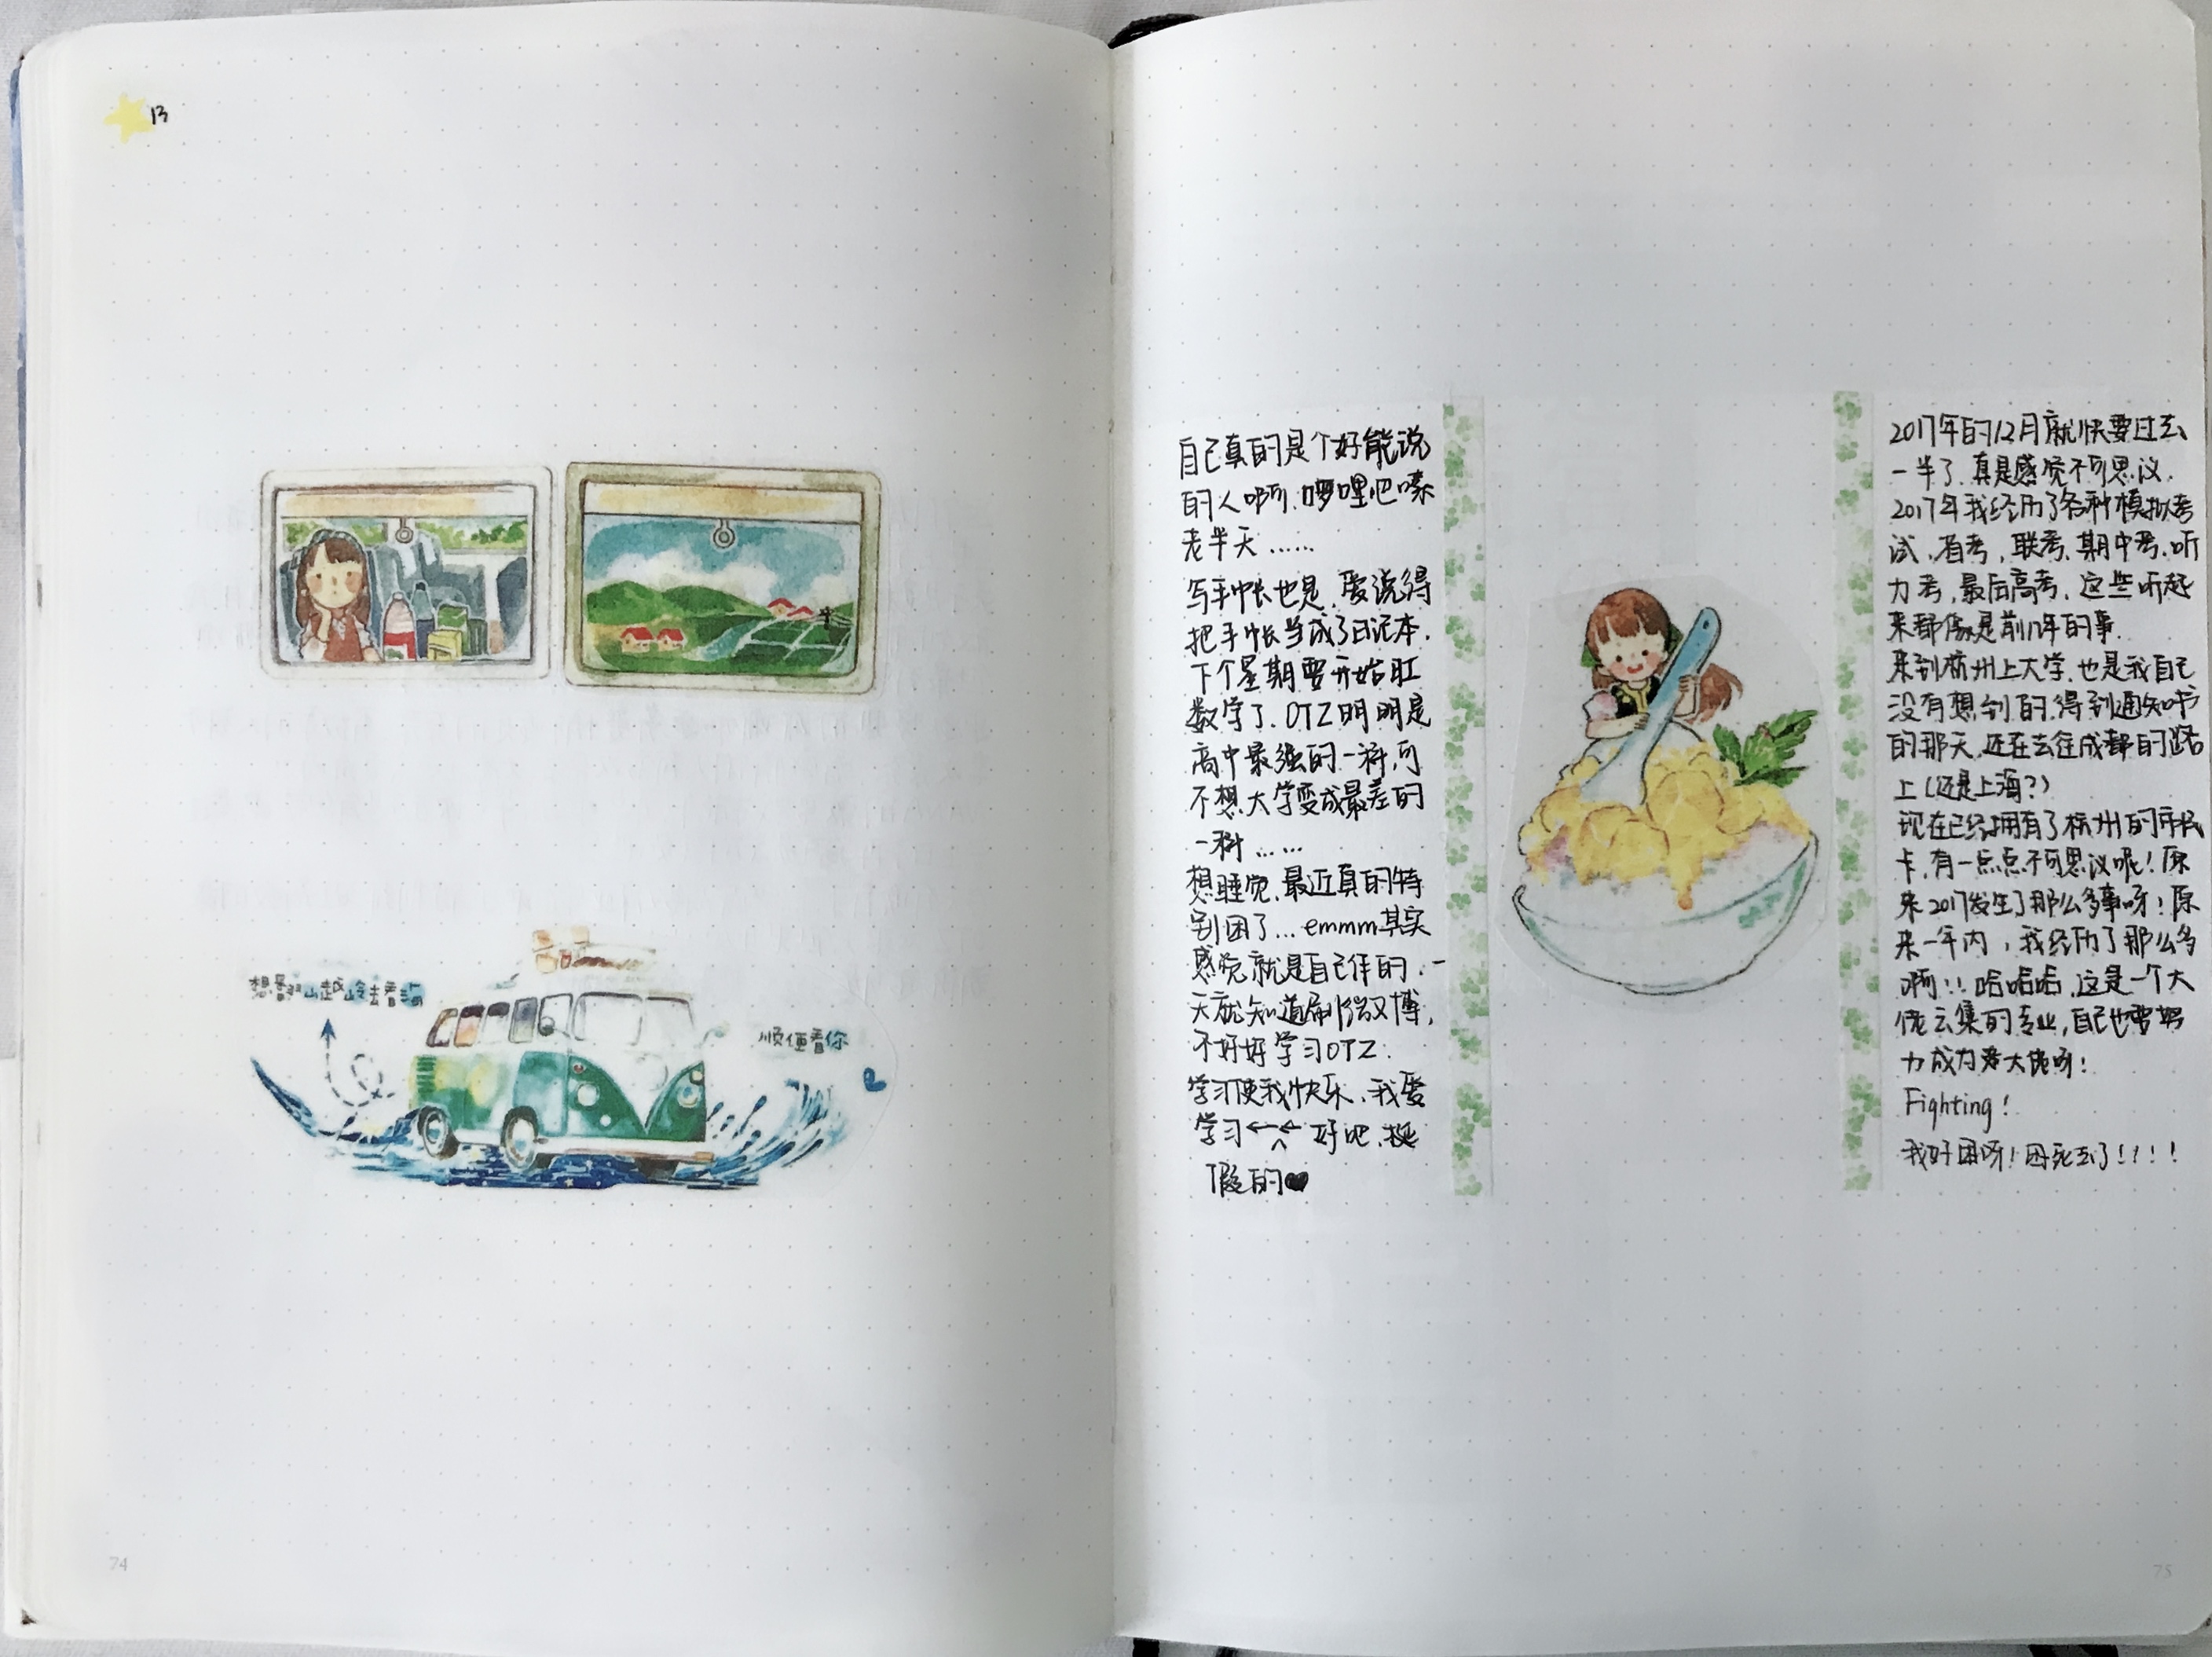 13
想翻山越岭去看海
顺便看你
自己真的是个好能说
的人啊,啰哩吧嗦
老半天……
写手帐也是,爱说得
把手帐当成了日记本.
下个星期要开始肛
数学了,OTZ明明是
高中最强的一科,可
不想大学变成最差的
一科……
想睡觉,最近真的特
别困了…emmm其实
感觉就是自己作的,一
天就知道刷微博,
不好好学习OTZ.
学习使我快乐,我爱
学习 好吧,挺
假的♥
2017年的12月就快要过去
一半了,真是感觉不可思议.
2017年我经历了各种模拟考
试,省考,联考,期中考,听
力考,最后高考,这些听起
来都像是前几年的事.
来到杭州上大学,也是我自己
没有想到的,得到通知书
的那天,还在去往成都的路
上(还是上海?)
现在已经拥有了杭州的市民
卡,有一点点不可思议呢!原
来2017发生了那么多事呀!原
来一年内,我经历了那么多
啊!!哈哈哈,这是一个大
佬云集的专业,自己也要努
力成为大佬呀!
Fighting!
我好困呀!困死去了!!!!
74
75